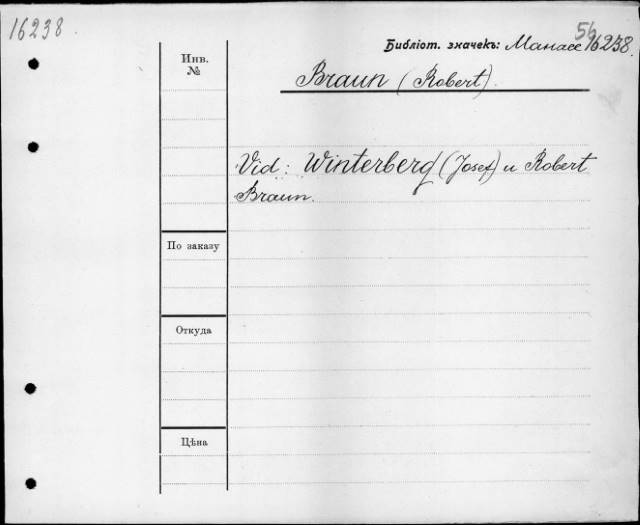 16238.
56
Библіот. значекъ: Манасе 16238.
Инв.
№
Braun (Robert).
Vid: Winterberg (Josef) u Robert
Braun.
По заказу
Откуда
Цѣна